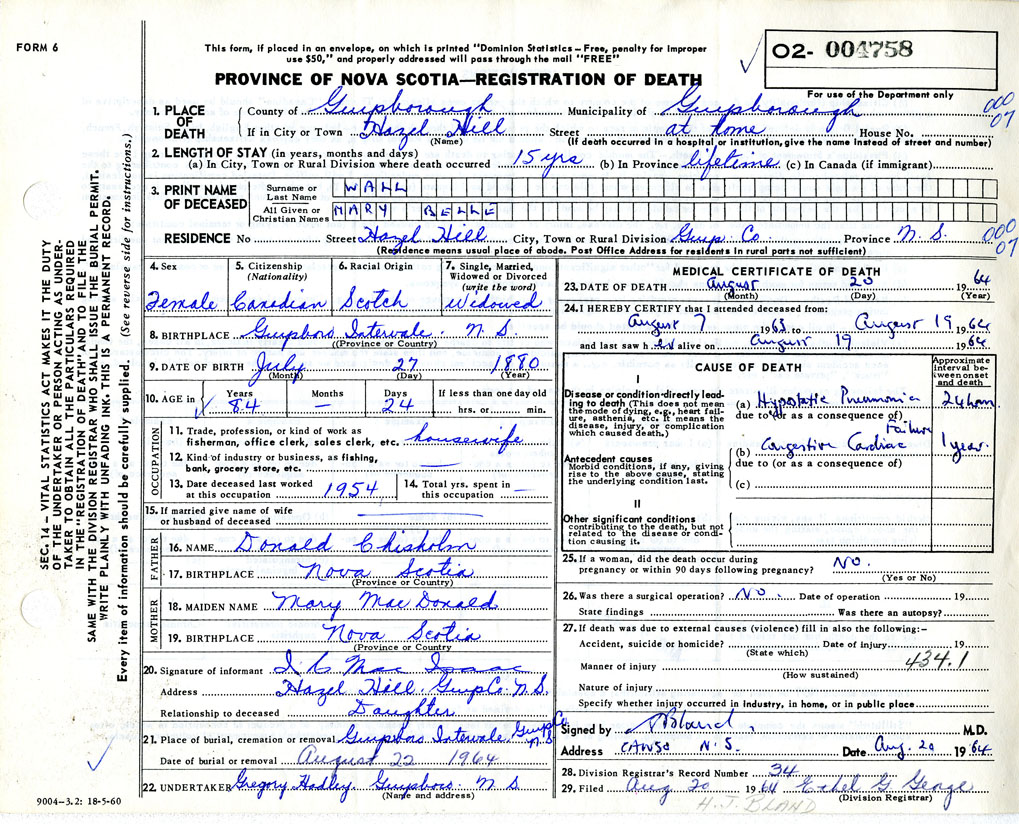 FORM 6
This form, if placed in an envelope, on which is printed "Dominion Statistics – Free, penalty for improper
use $50," and properly addressed will pass through the mail "FREE"
PROVINCE OF NOVA SCOTIA—REGISTRATION OF DEATH
02- 004758
For use of the Department only
SEC. 14 – VITAL STATISTICS ACT MAKES IT THE DUTY
OF THE UNDERTAKER OR PERSON ACTING AS UNDER-
TAKER TO OBTAIN ALL THE PARTICULARS REQUIRED
IN THE "REGISTRATION OF DEATH" AND TO FILE THE
SAME WITH THE DIVISION REGISTRAR WHO SHALL ISSUE THE BURIAL PERMIT.
WRITE PLAINLY WITH UNFADING INK. THIS IS A PERMANENT RECORD.
Every item of information should be carefully supplied. (See reverse side for instructions.)
1. PLACE OF DEATH
County of Guysborough Municipality of Guysborough 000
If in City or Town Hazel Hill Street at home House No. 07
(Name) (If death occurred in a hospital or institution, give the name instead of street and number)
2. LENGTH OF STAY (in years, months and days)
(a) In City, Town or Rural Division where death occurred 15 yrs (b) In Province lifetime (c) In Canada (if immigrant)
3. PRINT NAME OF DECEASED
Surname or Last Name WALL
All Given or Christian Names MARY BELLE
RESIDENCE No Street Hazel Hill City, Town or Rural Division Guys. Co. Province N. S. 000
(Residence means usual place of abode. Post Office Address for residents in rural parts not sufficient) 07
4. Sex
Female
5. Citizenship (Nationality)
Canadian
6. Racial Origin
Scotch
7. Single, Married, Widowed or Divorced (write the word)
Widowed
8. BIRTHPLACE Guysboro Intervale. N. S
(Province or Country)
9. DATE OF BIRTH July 27 1880
(Month) (Day) (Year)
10. AGE in Years 84 Months – Days 24 If less than one day old hrs. or min.
OCCUPATION
11. Trade, profession, or kind of work as
fisherman, office clerk, sales clerk, etc. housewife
12. Kind of industry or business, as fishing,
bank, grocery store, etc. —
13. Date deceased last worked
at this occupation 1954
14. Total yrs. spent in
this occupation —
15. If married give name of wife
or husband of deceased —
FATHER
16. NAME Donald Chisholm
17. BIRTHPLACE Nova Scotia
(Province or Country)
MOTHER
18. MAIDEN NAME Mary MacDonald
19. BIRTHPLACE Nova Scotia
(Province or Country)
20. Signature of informant Mac Isaac
Address Hazel Hill Guys Co. N.S.
Relationship to deceased Daughter
21. Place of burial, cremation or removal Guysboro Intervale. Guys Co N S
Date of burial or removal August 22 1964
22. UNDERTAKER Gregory Hadley. Guysboro. N S
(Name and address)
9004–3.2: 18-5-60
MEDICAL CERTIFICATE OF DEATH
23. DATE OF DEATH August 20 1964
(Month) (Day) (Year)
24. I HEREBY CERTIFY that I attended deceased from:
August 7 1963 to August 19 1964
and last saw her alive on August 19 1964
CAUSE OF DEATH
Approximate interval between onset and death
I
Disease or condition directly lead-
ing to death (This does not mean
the mode of dying, e.g., heart fail-
ure, asthenia, etc. It means the
disease, injury, or complication
which caused death.)
(a) Hypostatic Pneumonia 24 hours
due to (or as a consequence of)
Antecedent causes
Morbid conditions, if any, giving
rise to the above cause, stating
the underlying condition last.
(b) Congestive Cardiac Failure 1 year.
due to (or as a consequence of)
(c)
II
Other significant conditions
contributing to the death, but not
related to the disease or condi-
tion causing it.
25. If a woman, did the death occur during
pregnancy or within 90 days following pregnancy? No.
(Yes or No)
26. Was there a surgical operation? No. Date of operation 19
State findings Was there an autopsy?
27. If death was due to external causes (violence) fill in also the following:–
Accident, suicide or homicide? Date of injury 19
(State which)
434.1
Manner of injury
(How sustained)
Nature of injury
Specify whether injury occurred in industry, in home, or in public place
Signed by Bland M.D.
Address CANSO N.S. Date Aug. 20 1964
28. Division Registrar's Record Number 34
29. Filed Aug 20 1964 Ethel G George
(Division Registrar)
H.J. BLAND